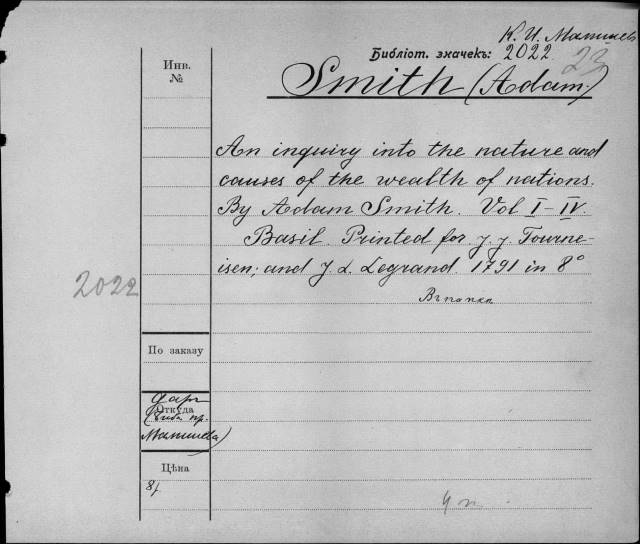 К. И.
Библіот. значекъ: 2022
23
Инв.
№
Smith (Adam.)
An inquiry into the nature and
causes of the wealth of nations.
By Adam Smith. Vol I–IV.
Basil. Printed for J. J. Tourne-
isen; and J. L. Legrand. 1791 in 8°
2022
Въ папкѣ
По заказу
Даръ
Откуда
Цѣна